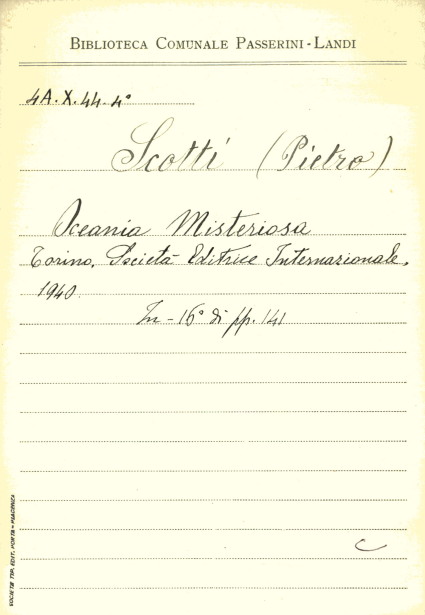 BIBLIOTECA COMUNALE PASSERINI-LANDI
4A.X.44.4°
Scotti (Pietro)
Oceania Misteriosa
Torino, Società Editrice Internazionale,
1940.
In-16° di pp. 141
C
SOCIETÀ TIP. EDIT. PORTA - PIACENZA